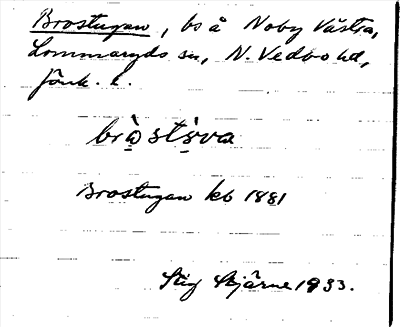 Brostugan, bs å Noby Västra,
Lommaryds sn, N. Vedbo hd,
Jönk. l.
brò̤sts̤̀va
Brostugan kb 1881
Stig Stjärne 1933.